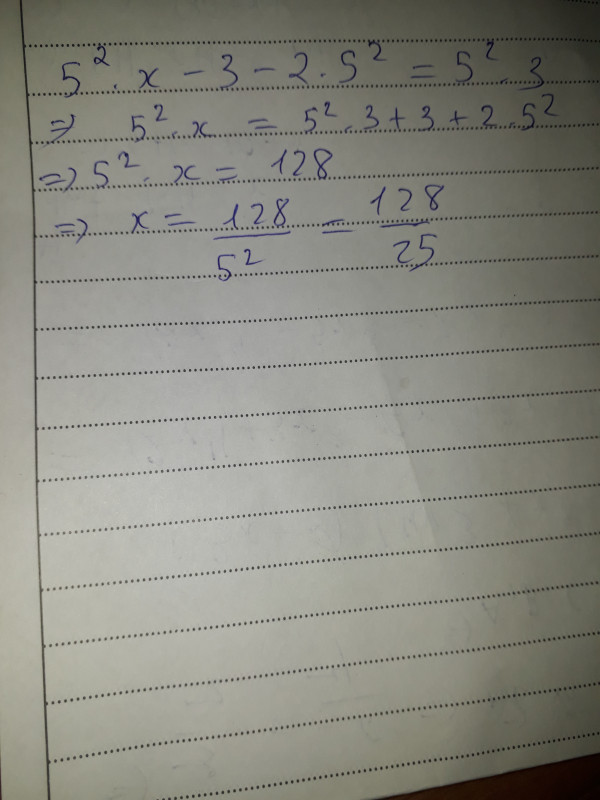 5² . x - 3 - 2 . 5² = 5² . 3
=> 5² . x = 5² . 3 + 3 + 2 . 5²
=> 5² . x = 128
=> x = 128/5² = 128/25